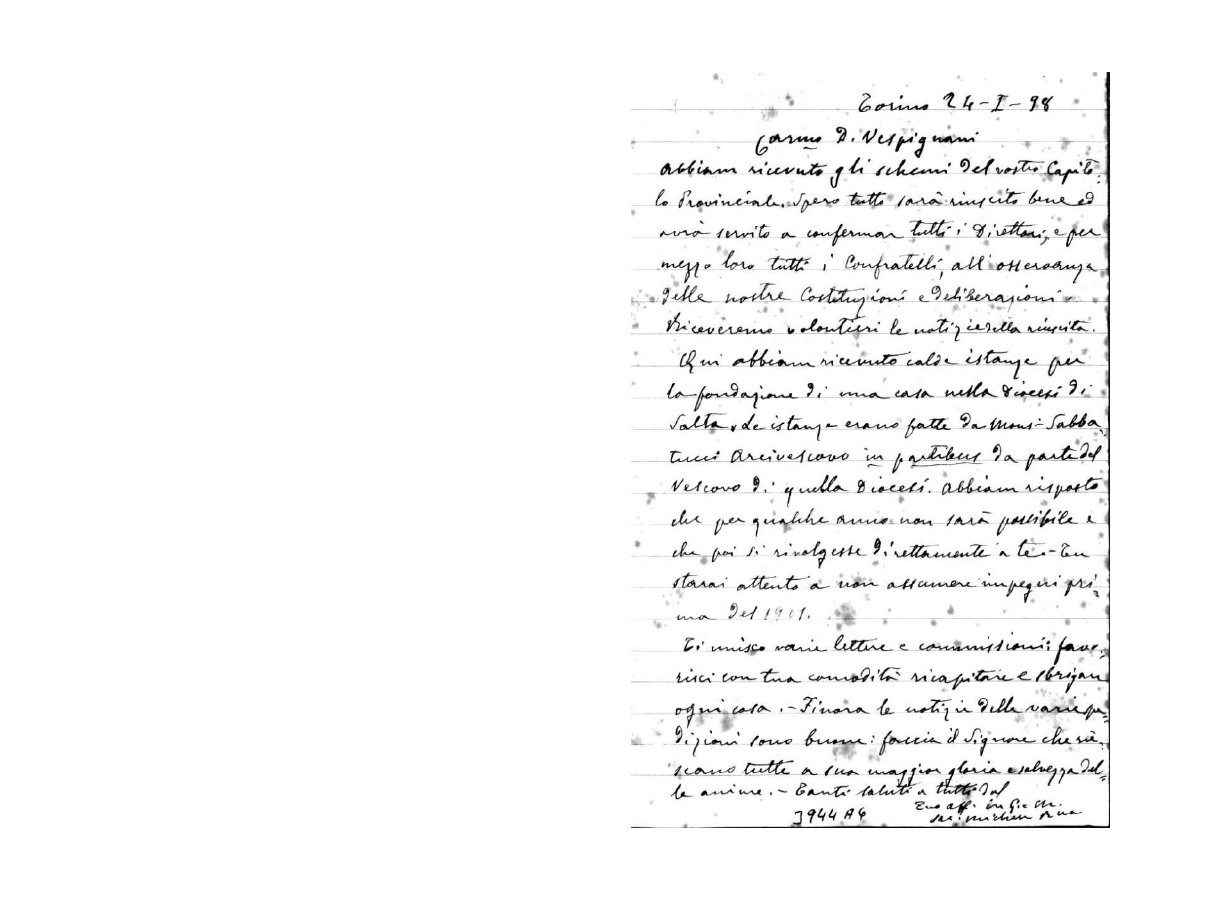 Torino 24-I-98
Carmo D. Vespignani
Abbiam ricevuto gli schemi del vostro Capito-
lo Provinciale. Spero tutto sarà riuscito bene ed
avrà servito a confermar tutti i Direttori, e per
mezzo loro tutti i Confratelli, all'osservanza
delle nostre Costituzioni e deliberazioni.
Riceveremo volontieri le notizie della riuscita.
Qui abbiam ricevuto calde istanze per
la fondazione di una casa nella Diocesi di
Salta. Le istanze erano fatte da Mons. Sabba-
tucci Arcivescovo in partibus da parte del
Vescovo di quella Diocesi. Abbiam risposto
che per qualche anno non sarà possibile e
che poi si rivolgesse direttamente a te.- Tu
starai attento a non assumere impegni pri-
ma del 1901.
Ti unisco varie lettere e commissioni: favo-
risci con tua comodità ricapitare e sbrigare
ogni cosa. - Finora le notizie delle varie spe-
dizioni sono buone: faccia il Signore che rie-
scano tutte a sua maggior gloria e salvezza del-
le anime. - Tanti saluti a tutti dal
Tuo aff. in G. e M.
Sac. Michele Rua
3944 A6